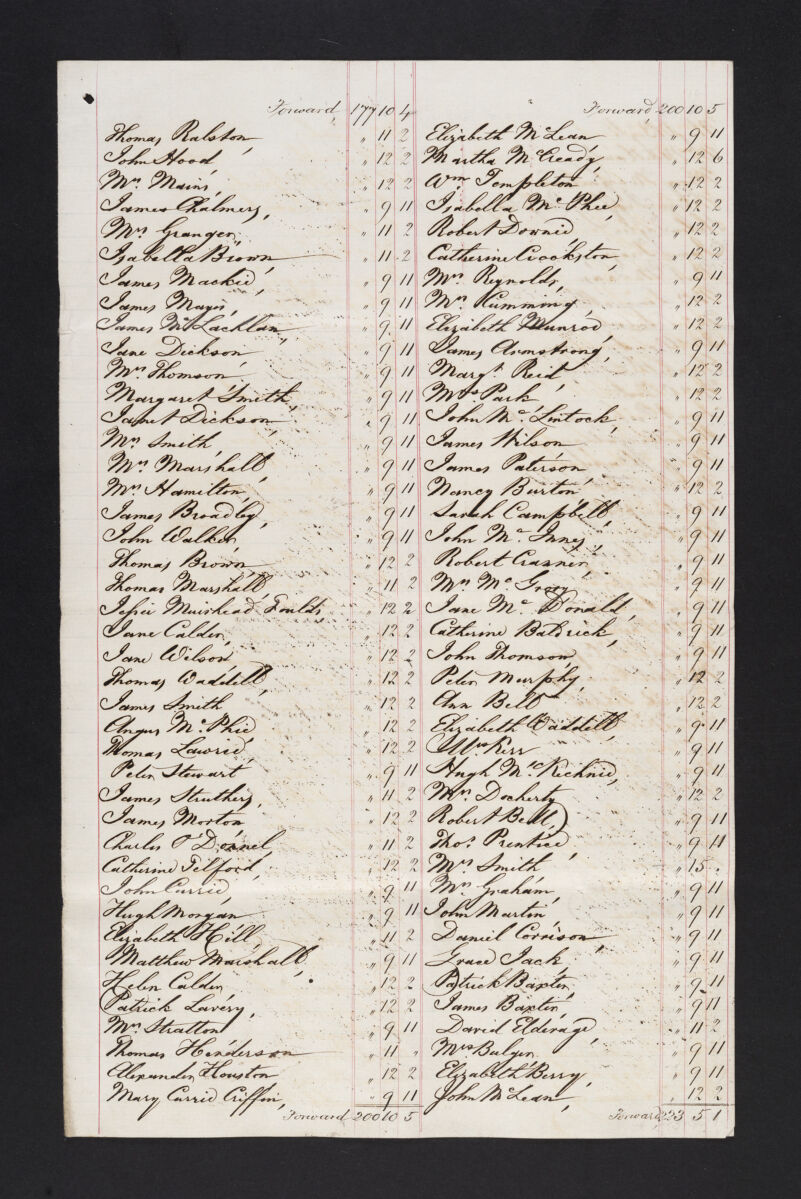 Forward 177 10 4
Thomas Ralston " 11 2
John Hood " 12 2
Mrs. Mains " 12 2
James Chalmers " 9 11
Mrs. Granger " 11 2
Isabella Brown " 11 2
James Mackie " 9 11
James Mayis " 9 11
James McLachlan " 9 11
Jane Dickson " 9 11
Mrs. Thomson " 9 11
Margaret Smith " 9 11
Janet Dickson " 9 11
Mrs. Smith " 9 11
Mrs. Marshall " 9 11
Mrs. Hamilton " 9 11
James Broadley " 9 11
John Walker " 9 11
Thomas Brown " 12 2
Thomas Marshall " 11 2
Jessie Muirhead Foulds " 12 2
Jane Calder " 12 2
Jane Wilson " 12 2
Thomas Waddell " 12 2
James Smith " 12 2
Angus McPhie " 12 2
Thomas Lawrie " 12 2
Peter Stewart " 9 11
James Struthers " 11 2
James Morton " 12 2
Charles O'Donnel " 11 2
Catherine Telford " 12 2
John Currie " 9 11
Hugh Morgan " 9 11
Elizabeth Hill " 11 2
Matthew Marshall " 9 11
Helen Calder " 12 2
Patrick Lavery " 12 2
Mrs. Stratton " 9 11
Thomas Henderson " 11 "
Alexander Houston " 12 2
Mary Currie Giffin " 9 11
Forward 200 10 5
Forward 200 10 5
Elizabeth McLean " 9 11
Martha McCready " 12 6
Wm Templeton " 12 2
Isabella McPhie " 12 2
Robert Downie " 12 2
Catherine Crookston " 12 2
Mrs. Reynolds " 9 11
Mrs. Cumming " 12 2
Elizabeth Munroe " 12 2
James Armstrong " 9 11
Margt. Reid " 12 2
Mrs. Park " 12 2
John McLintock " 9 11
James Wilson " 9 11
James Paterson " 9 11
Nancy Burton " 12 2
Sarah Campbell " 9 11
John McInnes " 9 11
Robert " 9 11
Mrs. " 9 11
Jane McDonald " 9 11
Catherine Baldrick " 9 11
John Thomson " 9 11
Peter Murphy " 12 2
Ann Bell " 12 2
Elizabeth Waddell " 9 11
Wm Kerr " 9 11
Hugh McKechnie " 9 11
Mrs. Docherty " 12 2
Robert Bell " 9 11
Thos. Prentice " 9 11
Mrs. Smith " 15 "
Mrs. Graham " 9 11
John Martin " 9 11
Daniel Corrison " 9 11
Grace Jack " 9 11
Patrick Baxter " 9 11
James Baxter " 9 11
David Elderage " 11 2
Mrs Bulger " 9 11
Elizabeth Berry " 9 11
John McLean " 12 2
Forward 223 5 1